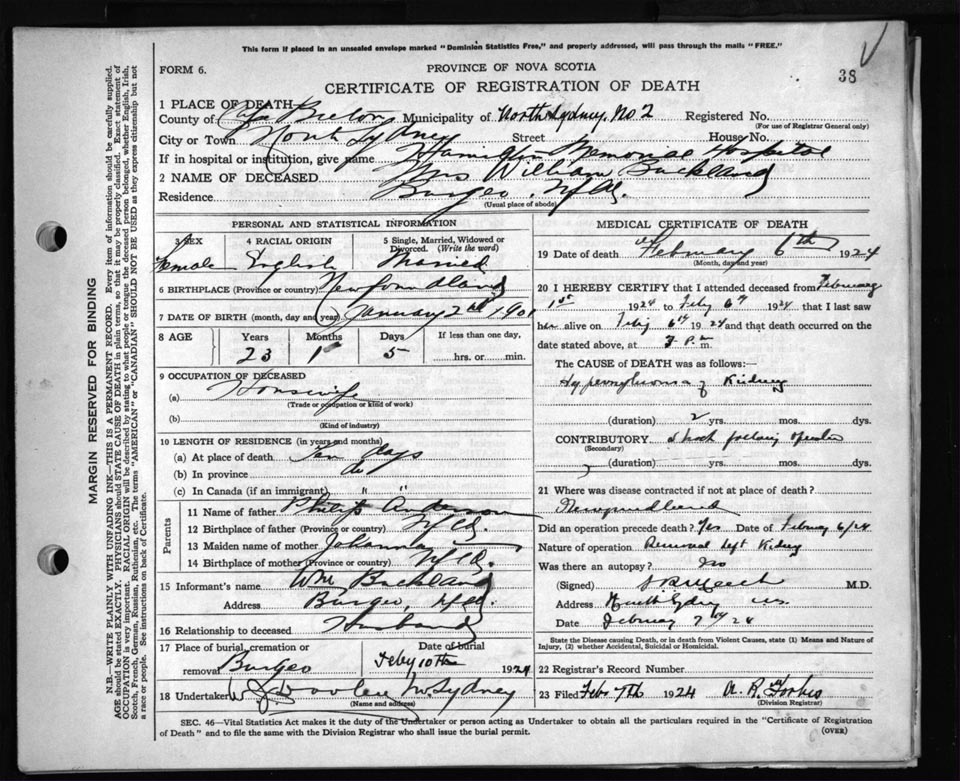 This form if placed in an unsealed envelope marked "Dominion Statistics Free," and properly addressed, will pass through the mails "FREE."
38
FORM 6.
PROVINCE OF NOVA SCOTIA
CERTIFICATE OF REGISTRATION OF DEATH
1 PLACE OF DEATH
County of Cape Breton Municipality of North Sydney, No 2 Registered No.
(For use of Registrar General only)
City or Town North Sydney Street House No.
If in hospital or institution, give name Hamilton Memorial Hospital
2 NAME OF DECEASED Mrs William Buckland
Residence Burgeo, Nfld.
(Usual place of abode)
PERSONAL AND STATISTICAL INFORMATION
3 SEX 4 RACIAL ORIGIN 5 Single, Married, Widowed or Divorced. (Write the word)
Female English Married
6 BIRTHPLACE (Province or country) Newfoundland
7 DATE OF BIRTH (month, day and year) January 2nd 1901
8 AGE Years Months Days If less than one day,
23 1 5 hrs. or min.
9 OCCUPATION OF DECEASED
(a) Housewife
(Trade or occupation or kind of work)
(b)
(Kind of industry)
10 LENGTH OF RESIDENCE (in years and months)
(a) At place of death Ten days
(b) In province do
(c) In Canada (if an immigrant) " "
Parents
11 Name of father Philip Anderson
12 Birthplace of father (Province or country) Nfld.
13 Maiden name of mother Johanna
14 Birthplace of mother (Province or country) Nfld.
15 Informant's name Wm Buckland
Address Burgeo, Nfld.
16 Relationship to deceased Husband
17 Place of burial, cremation or removal Burgeo Date of burial Feby 10th 1924
18 Undertaker N. Sydney
(Name and address)
MEDICAL CERTIFICATE OF DEATH
19 Date of death February 6th 1924
(Month, day and year)
20 I HEREBY CERTIFY that I attended deceased from February
1st 1924 to Feby 6th 1924 that I last saw
her alive on Feby 6th 1924 and that death occurred on
date stated above, at 7 P.m.
The CAUSE of DEATH was as follows:—
Hypernephroma of Kidney
(duration) 2 yrs. mos. dys.
CONTRIBUTORY Shock following operation
(Secondary)
(duration) yrs. mos. dys.
21 Where was disease contracted if not at place of death?
Newfoundland
Did an operation precede death? Yes Date of February 6/24
Nature of operation Removal left Kidney
Was there an autopsy? No
(Signed) M.D.
Address North Sydney N.S.
Date February 7th 24
State the Disease causing Death, or in death from Violent Causes, state (1) Means and Nature of Injury, (2) whether Accidental, Suicidal or Homicidal.
22 Registrar's Record Number
23 Filed Feb. 7th 1924 A. R. Forbes
(Division Registrar)
SEC. 46—Vital Statistics Act makes it the duty of the Undertaker or person acting as Undertaker to obtain all the particulars required in the "Certificate of Registration
of Death" and to file the same with the Division Registrar who shall issue the burial permit.
(OVER)
MARGIN RESERVED FOR BINDING
N.B.—WRITE PLAINLY WITH UNFADING INK—THIS IS A PERMANENT RECORD. Every item of information should be carefully supplied.
AGE should be stated EXACTLY. PHYSICIANS should STATE CAUSE OF DEATH in plain terms, so that it may be properly classified. Exact statement of
OCCUPATION is very important. RACIAL ORIGIN will be described by stating to what people or tongue the deceased person belonged, whether English, Irish,
Scotch, French, German, Russian, Ruthenian, etc. The terms "AMERICAN" or "CANADIAN" SHOULD NOT BE USED as they express citizenship but not
a race or people. See instructions on back of Certificate.